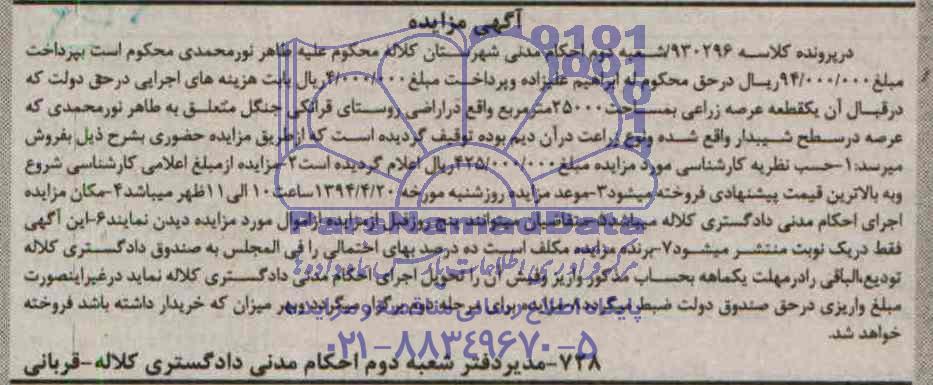 آگهی مزایده
درپرونده کلاسه ۹۳۰۲۹۶/شعبه دوم احکام مدنی شهرستان کلاله محکوم علیه طاهر نورمحمدی محکوم است بپرداخت
مبلغ ۹۴/۰۰۰/۰۰۰ریال درحق محکوم له ابراهیم علیزاده وپرداخت مبلغ ۴/۰۰۰/۰۰۰ریال بابت هزینه های اجرایی درحق دولت که
درقبال آن یکقطعه عرصه زراعی بمساحت ۲۵۰۰۰مترمربع واقع دراراضی روستای قرانکی جنگل متعلق به طاهر نورمحمدی که
عرصه درسطح شیبدار واقع شده ونوع زراعت درآن دیم بوده توقیف گردیده است که ازطریق مزایده حضوری بشرح ذیل بفروش
میرسد:۱-حسب نظریه کارشناسی مورد مزایده مبلغ ۴۲۵/۰۰۰/۰۰۰ریال اعلام گردیده است۲-مزایده ازمبلغ اعلامی کارشناسی شروع
وبه بالاترین قیمت پیشنهادی فروخته میشود۳-موعد مزایده روزشنبه مورخه ۱۳۹۴/۴/۲۰ساعت۱۰الی۱۱ظهر میباشد۴-مکان مزایده
اجرای احکام مدنی دادگستری کلاله میباشد۵-متقاضیان میتوانند پنج روزقبل ازمزایده ازاموال مورد مزایده دیدن نمایند۶-این آگهی
فقط دریک نوبت منتشر میشود۷-برنده مزایده مکلف است ده درصد بهای احتمالی را فی المجلس به صندوق دادگستری کلاله
تودیع‌الباقی رادرمهلت یکماهه بحساب مذکور واریز وفیش آن را تحویل اجرای احکام مدنی دادگستری کلاله نماید درغیراینصورت
مبلغ واریزی درحق صندوق دولت ضبط میگردد۸-مزایده برای مرحله دوم برگزار میگردد وبهر میزان که خریدار داشته باشد فروخته
خواهد شد.
۷۳۸-مدیردفتر شعبه دوم احکام مدنی دادگستری کلاله-قربانی
ParsNamadData
مرکز فرآوری اطلاعات پارس نماد داده ها
پایگاه اطلاع رسانی مناقصه و مزایده
۰۲۱-۸۸۳۴۹۶۷۰-۵